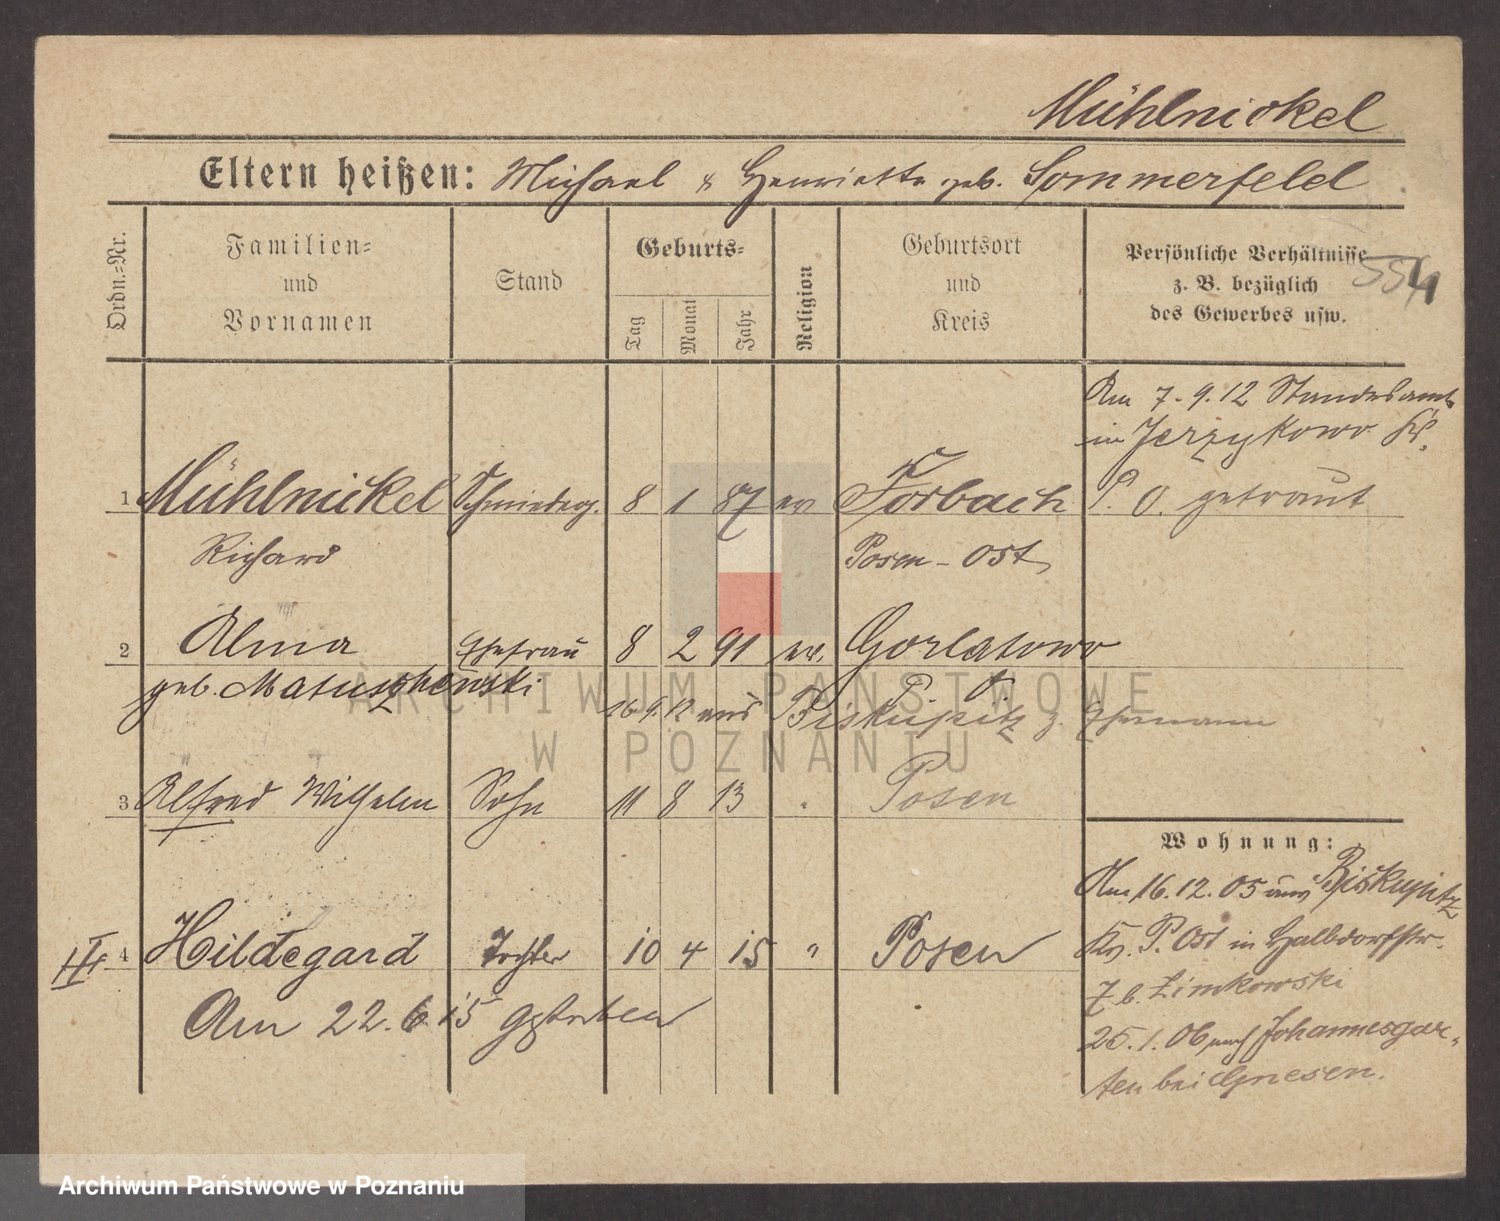 Mühlnickel
Eltern heißen: Michael & Henriette geb. Sommerfeld
Ordn.=Nr.
Familien=
und
Vornamen
Stand
Geburts=
Tag
Monat
Jahr
Religion
Geburtsort
und
Kreis
Persönliche Verhältnisse
z. B. bezüglich
des Gewerbes usw.
554
Am 7. 9. 12 Standesamt
in Jerzykowo Kr.
P. O. getraut
1 Mühlnickel Schmiedeg. 8 1 87 ev Forbach
Richard Posen-Ost
2 Alma Ehefrau 8 2 91 ev. Gorlatowo
geb. Matuszhewski P. O.
16 9. 12 aus Biskupitz z. Ehemann
3 Alfred Wilhelm Sohn 11 8 13 " Posen
4 Hildegard Tochter 10 4 15 " Posen
Am 22. 6 15 gestorben
Wohnung:
Am 16. 12. 05 aus Biskupitz
Kr. P. Ost in Halbdorfstr.
7 b. Zimkowski
25. 1. 06 nach Johannesgar-
ten bei Gnesen.
ARCHIWUM PAŃSTWOWE
W POZNANIU
Archiwum Państwowe w Poznaniu